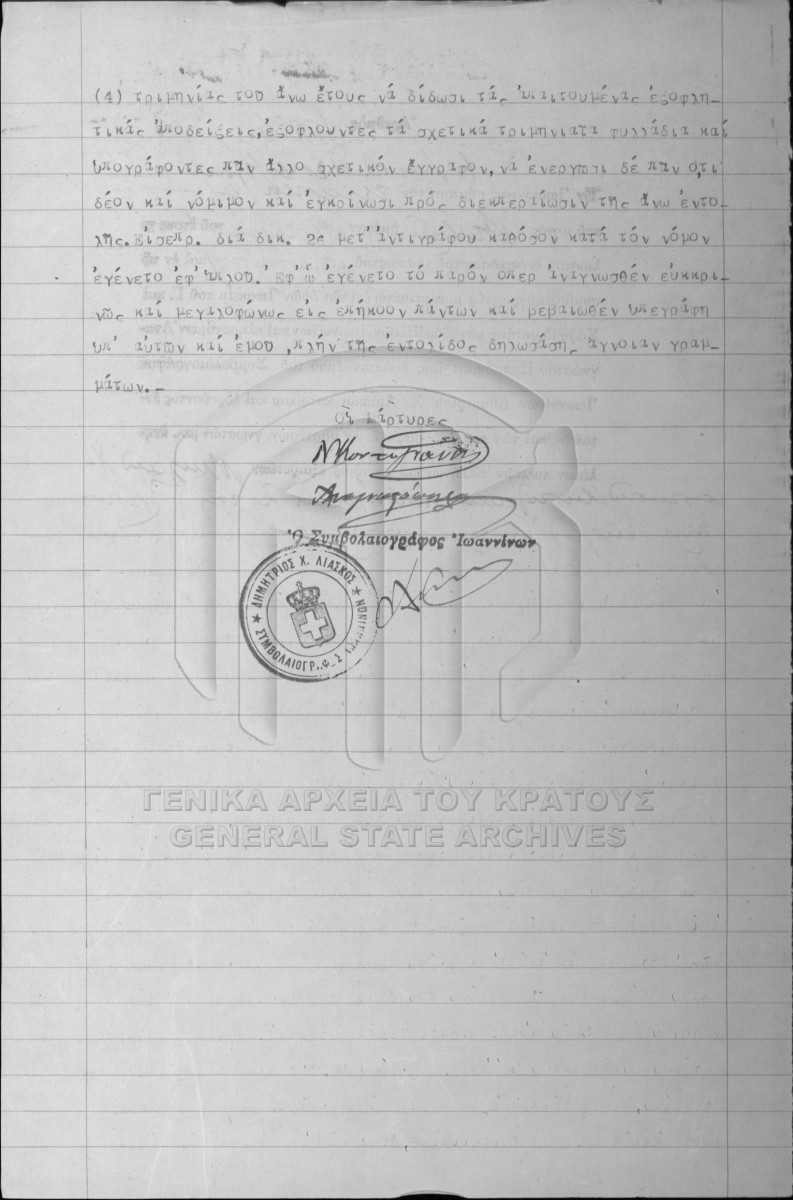 (4) τριμηνίας τοῦ ἄνω ἔτους νά δίδωσι τάς ἀπαιτουμένας ἐξοφλη-
τικάς ἀποδείξεις, ἐξοφλοῦντες τά σχετικά τριμηνιαῖα φυλλάδια καί
ὑπογράφοντες πᾶν ἄλλο σχετικόν ἔγγραφον, νά ἐνεργῶσι δέ πᾶν ὅ,τι
δέον καί νόμιμον καί ἐγκρίνωσι πρός διεκπεραίωσιν τῆς ἄνω ἐντο-
λῆς. Εἰσεπρ. διά δικ. 2ς μετ' ἀντιγράφου καθόσον κατά τόν νόμον
ἐγένετο ἐφ' ἁπλοῦ. Ἐφ' ᾧ ἐγένετο τό παρόν ὅπερ ἀναγνωσθέν εὐκκρι-
νῶς καί μεγαλοφώνως εἰς ἐπήκοον πάντων καί βεβαιωθέν ὑπεγράφη
ὑπ' αὐτῶν καί ἐμοῦ ,πλήν τῆς ἐντολίδος δηλωσάσης ἄγνοιαν γραμ-
μάτων.-
Οἱ Μάρτυρες
Ὁ Συμβολαιογράφος Ἰωαννίνων
ΔΗΜΗΤΡΙΟΣ Χ. ΛΙΑΣΚΟΣ
ΓΕΝΙΚΑ ΑΡΧΕΙΑ ΤΟΥ ΚΡΑΤΟΥΣ
GENERAL STATE ARCHIVES